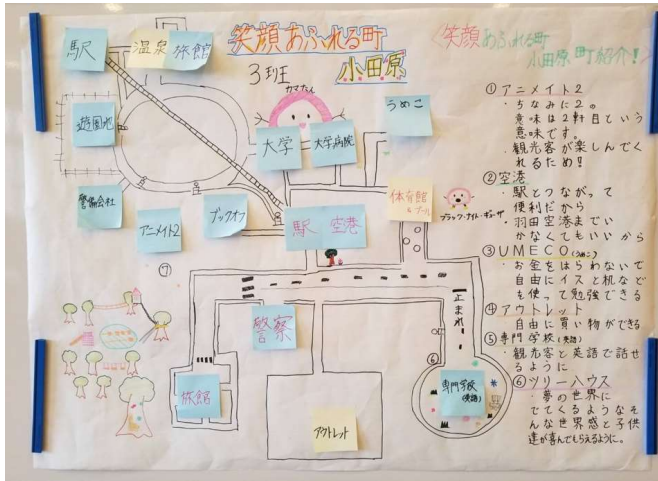 笑顔あふれる町
小田原
3班
カマたん
駅
温泉
旅館
遊園地
警備会社
アニメイト2
ブックオフ
大学
大学病院
うめこ
駅 空港
体育館
&プール
ブラック・ナイト・ギョーザ
⑦
警察
旅館
アウトレット
止まれ
⑥
専門学校
(英語)
〈笑顔あふれる町
小田原町紹介!〉
①アニメイト2
・ちなみに2の
意味は2軒目という
意味です。
・観光客が楽しんでく
れるため!
②空港
・駅とつながって
便利だから
・羽田空港までい
かなくてもいいから
③UMECO(うめこ)
・お金をはらわないで
自由にイスと机など
を使って勉強できる
④アウトレット
自由に買い物ができる
⑤専門学校(英語)
・観光客と英語で話せ
るように
⑥ツリーハウス
・夢の世界に
でてくるようなそ
んな世界感と子供
達が喜んでもらえるように。